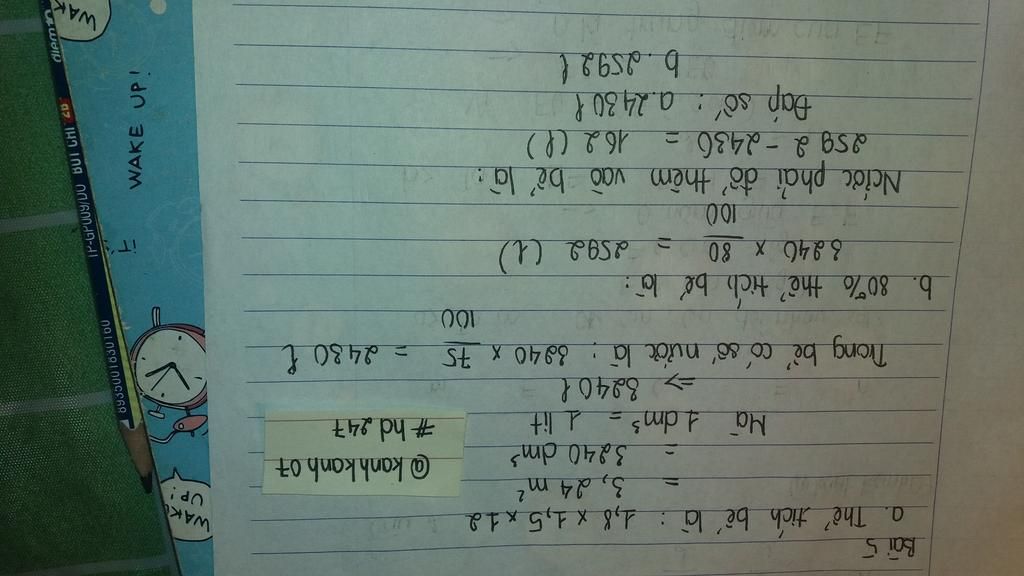 Bài 5
a. Thể tích bể là: 1,8 x 1,5 x 1 2
= 3,24 m²
= 3240 dm³
Mà 1 dm³ = 1 lít
=> 3240 l
Trong bể có số nước là: 3240 x 75/100 = 2430 l
b. 80% thể tích bể là:
3240 x 80/100 = 2592 (l)
Nước phải đổ thêm vào bể là:
2592 - 2430 = 162 (l)
Đáp số: a. 2430 l
b. 2592 l
@kanhkanh07
# hd 247
WAKE UP!
WAKE UP!
WAK
BÚT CHÌ 2B